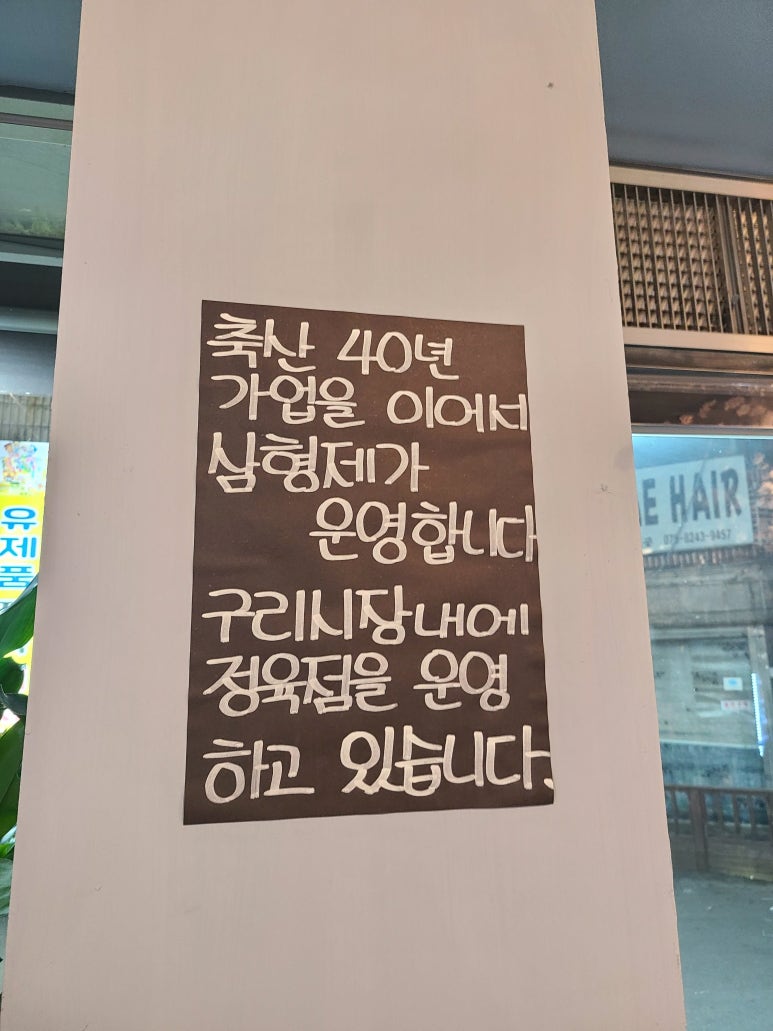 축산 40년
가업을 이어서
삼형제가
운영합니다
구리시장내에
정육점을 운영
하고 있습니다.
유
제
품
HAIR